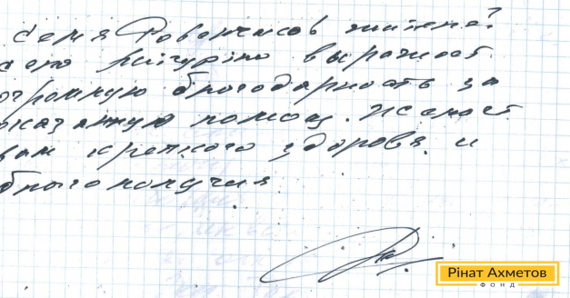 семя Рованчисов жителе?
село Мичурино выражает
огромную благодарность за
оказанную помощ. Желает
вам крепкого здоровя и
благополучия
Рінат Ахметов
ФОНД